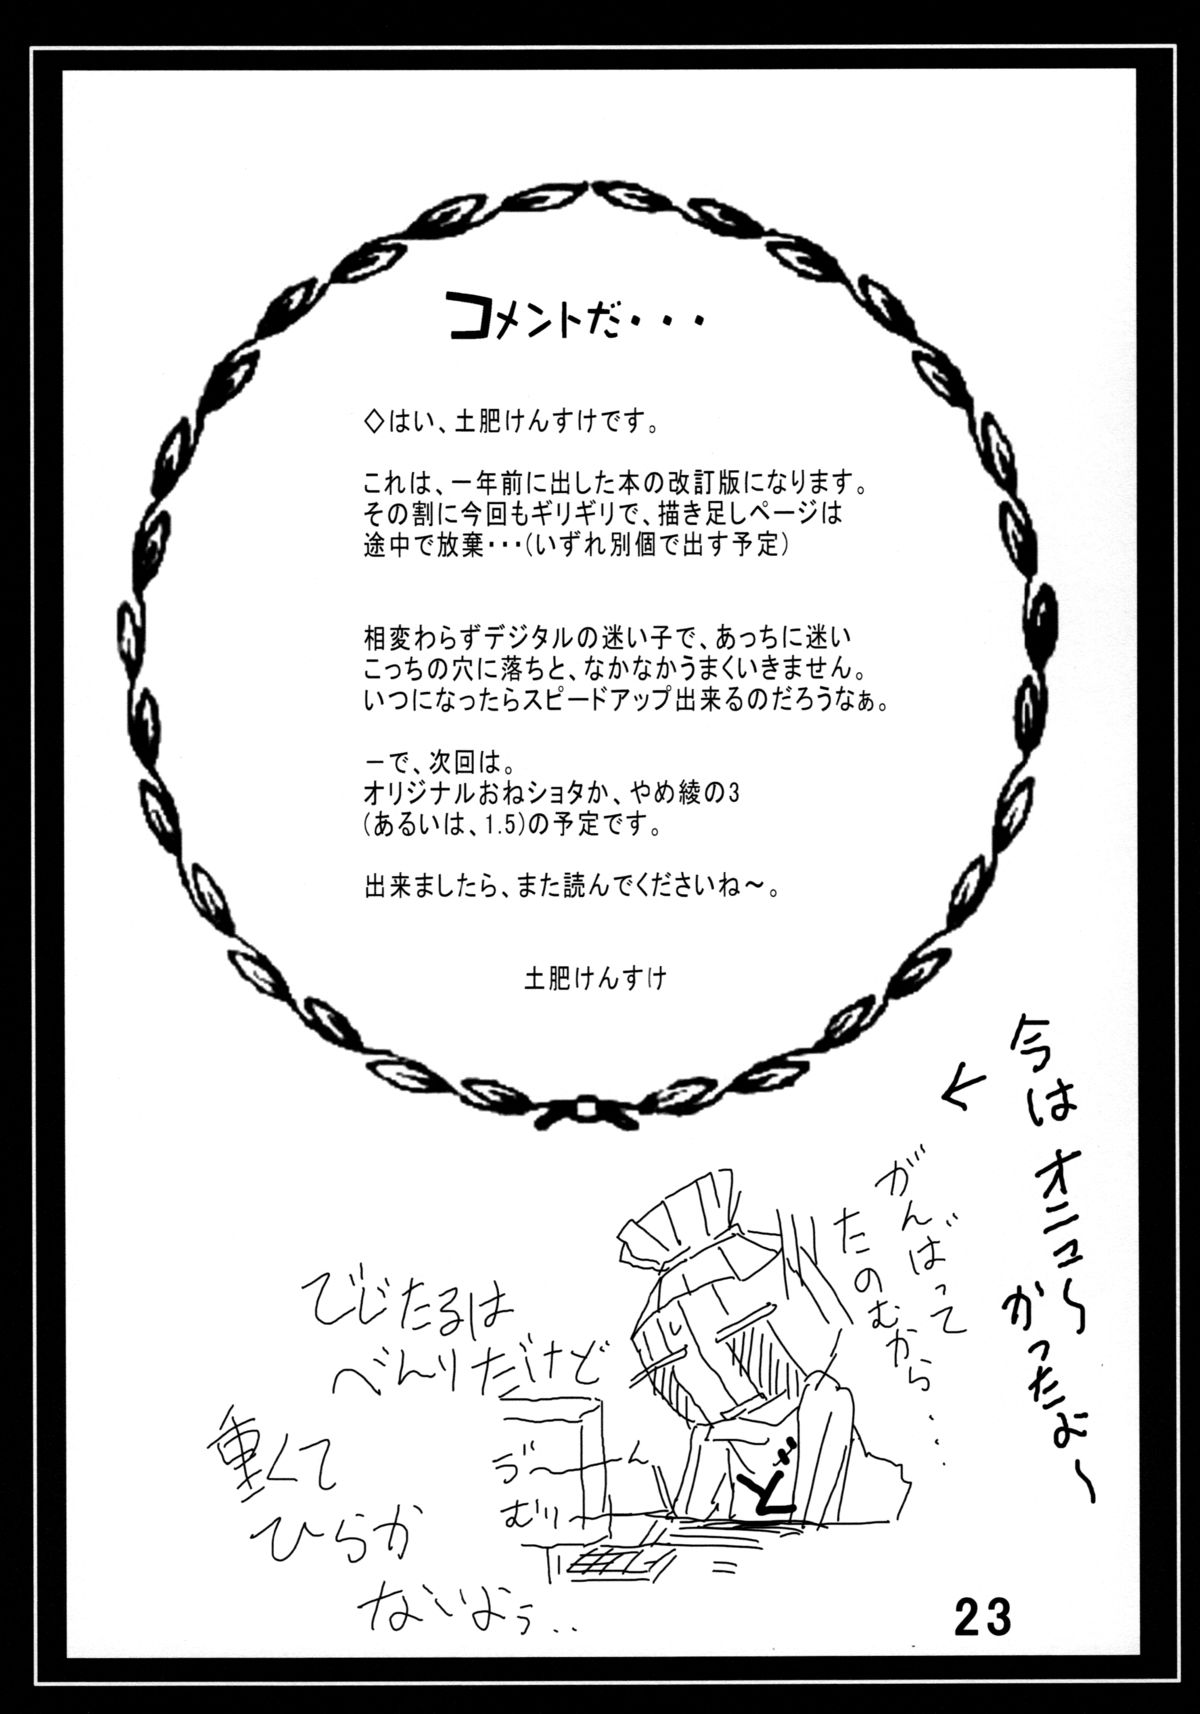 コメントだ・・・
◇はい、土肥けんすけです。
これは、一年前に出した本の改訂版になります。
その割に今回もギリギリで、描き足しページは
途中で放棄・・・(いずれ別個で出す予定)
相変わらずデジタルの迷い子で、あっちに迷い
こっちの穴に落ちと、なかなかうまくいきません。
いつになったらスピードアップ出来るのだろうなぁ。
－で、次回は。
オリジナルおねショタか、やめ綾の3
(あるいは、1.5)の予定です。
出来ましたら、また読んでくださいね～。
土肥けんすけ
今は
かったよ～
←
がんばって
たのむから・・・
でじたるは
べんりだけど
重くて
ひらか
ないよぅ・・
むり～
ど
23